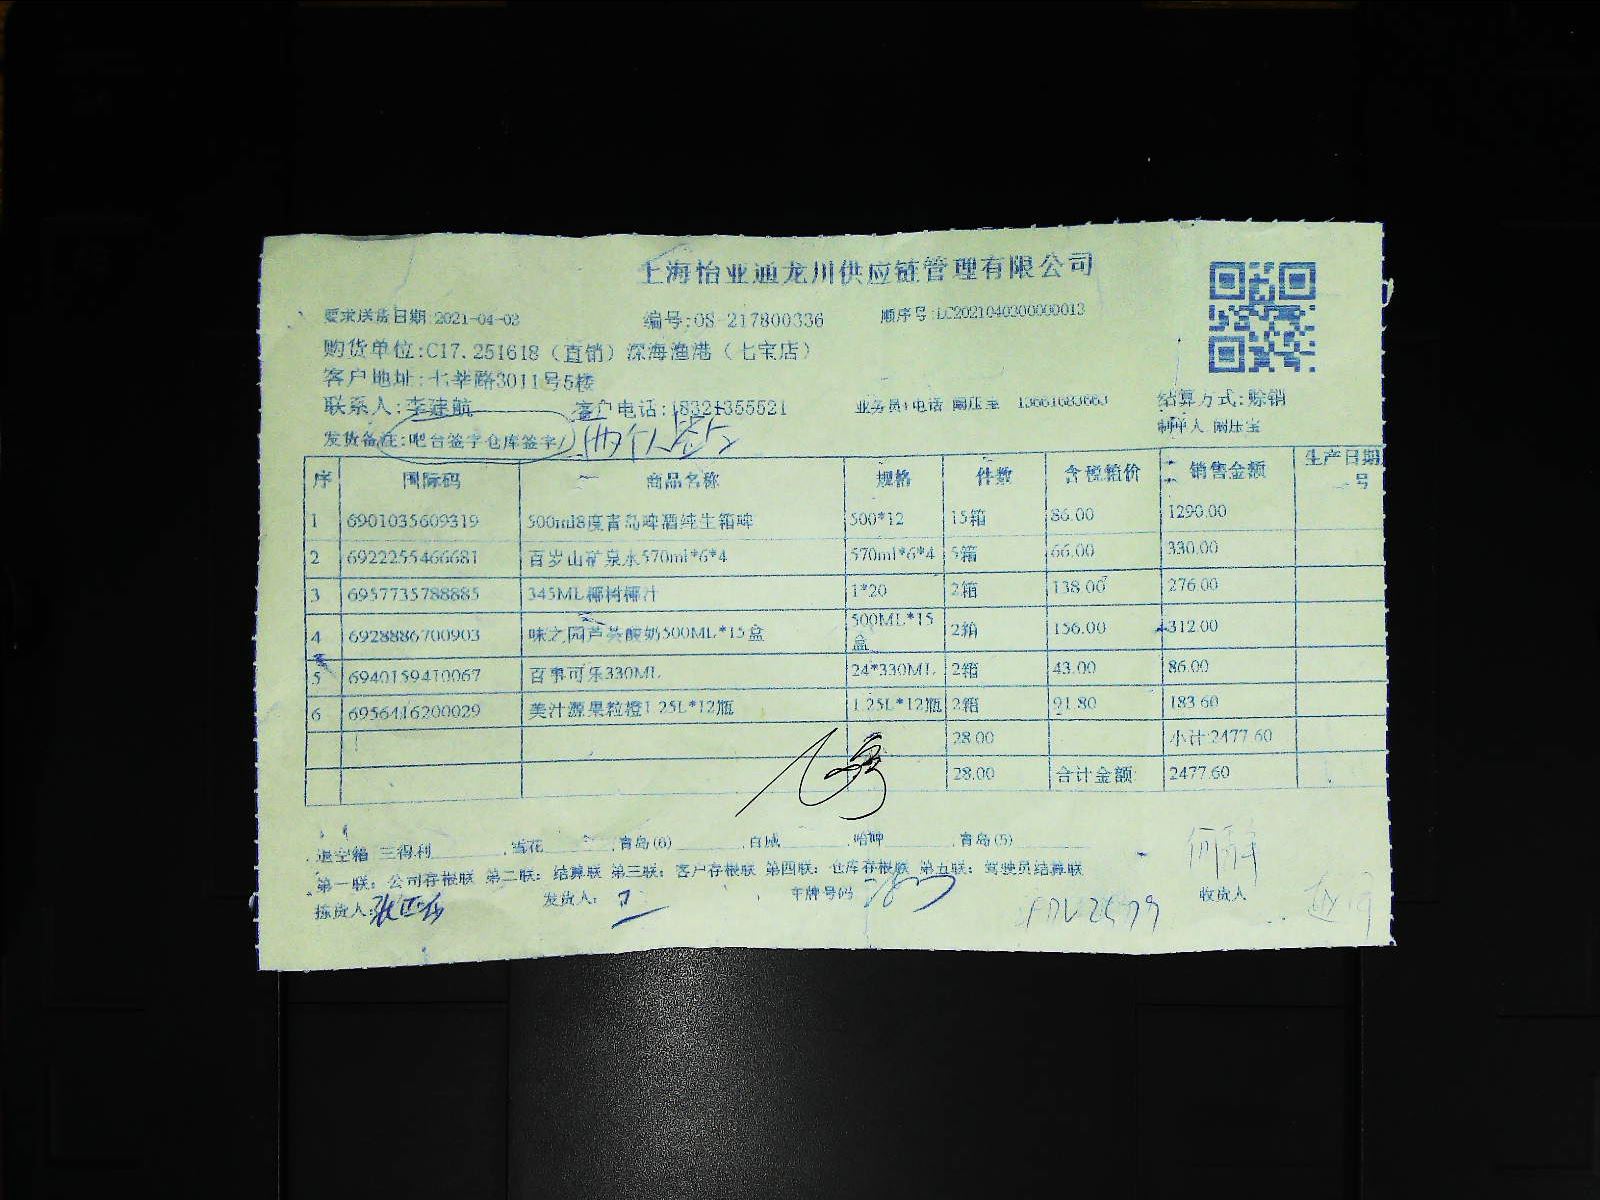 上海怡亚通龙川供应链管理有限公司
要求送货日期:2021-04-03 编号:OS-217800336 顺序号:LC2021040300000013
购货单位:C17.251618（直销）深海渔港（七宝店）
客户地址:七莘路3011号5楼
联系人:李建航 客户电话:18321355521 业务员+电话 阚压宝 13661683663 结算方式:赊销
发货备注:吧台签字仓库签字/ 两个人签字 制单人 阚压宝
序 国际码 商品名称 规格 件数 含税箱价 销售金额 生产日期
号
1 6901035609319 500ml8度青岛啤酒纯生箱啤 500*12 15箱 86.00 1290.00
2 6922255466681 百岁山矿泉水570ml*6*4 570ml*6*4 5箱 66.00 330.00
3 6957735788885 345ML椰树椰汁 1*20 2箱 138.00 276.00
4 6928886700903 味之园芦荟酸奶500ML*15盒 500ML*15盒 2箱 156.00 312.00
5 6940159410067 百事可乐330ML 24*330ML 2箱 43.00 86.00
6 6956416200029 美汁源果粒橙1.25L*12瓶 1.25L*12瓶 2箱 91.80 183.60
28.00 小计:2477.60
28.00 合计金额: 2477.60
退空箱 三得利 雪花 青岛(6) 百威 哈啤 青岛(5)
第一联：公司存根联 第二联：结算联 第三联：客户存根联 第四联：仓库存根联 第五联：驾驶员结算联
拣货人: 发货人: 车牌号码 收货人